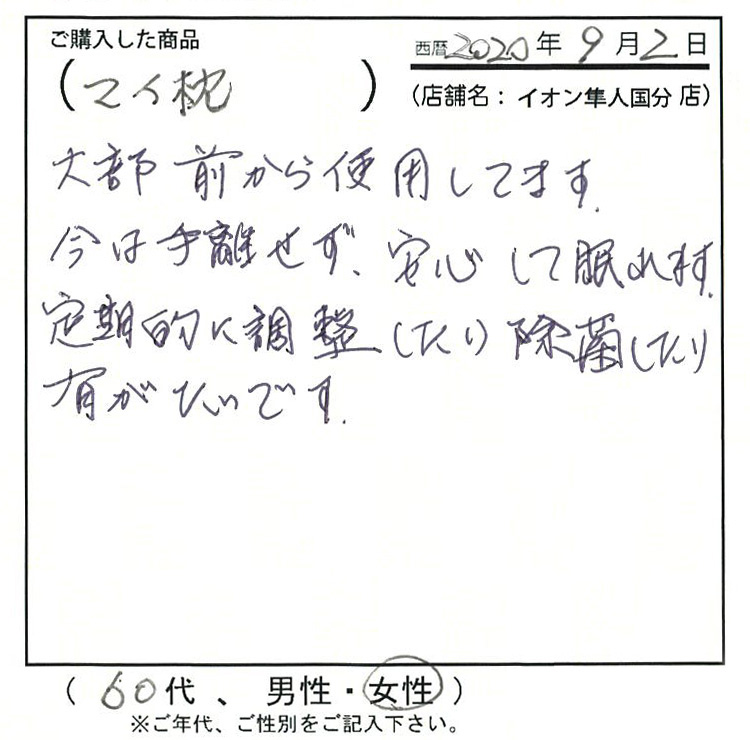 ご購入した商品
西暦2020年9月2日
(マイ枕)
(店舗名:イオン隼人国分店)
大部前から使用してます.
今は手離せず、安心して眠れます.
定期的に調整したり除菌したり
有がたいです.
(60代、男性・女性)
※ご年代、ご性別をご記入下さい。